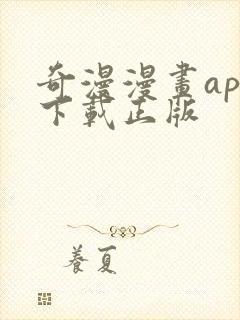 奇漫漫畫ap
下載正版
養夏